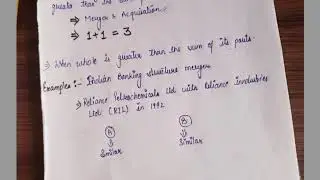 than the
⇒ Merger & Acquisition
⇒ 1+1 = 3
⇒ When whole is greater than the sum of its parts.
Examples :- Indian Banking structure merger
⇒ Reliance Petrochemicals Ltd with Reliance Industries
Ltd (RIL) in 1992
A B
Similar Similar